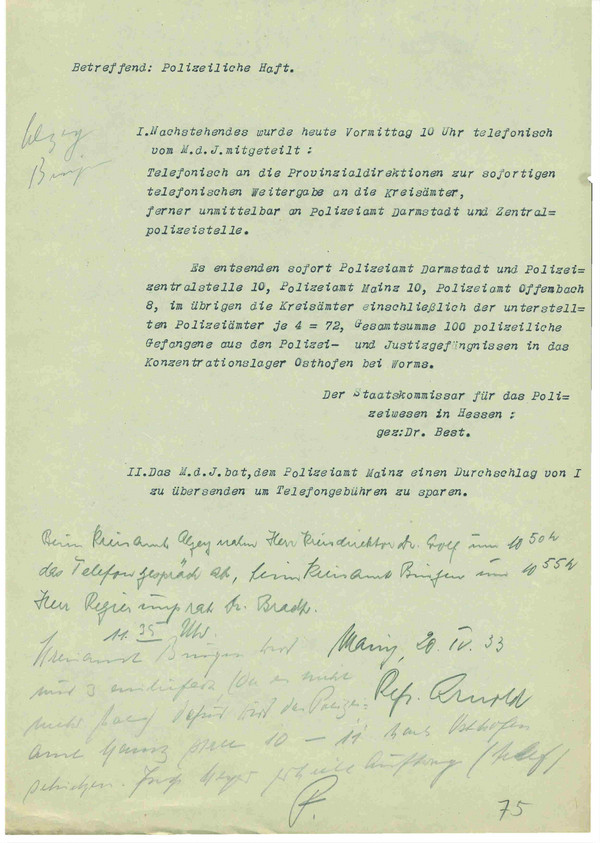 Betreffend: Polizeiliche Haft.
Alzey
I.Nachstehendes wurde heute Vormittag 10 Uhr telefonisch
vom M.d.J.mitgeteilt :
Telefonisch an die Provinzialdirektionen zur sofortigen
telefonischen Weitergabe an die Kreisämter,
ferner unmittelbar an Polizeiamt Darmstadt und Zentral=
polizeistelle.
Es entsenden sofort Polizeiamt Darmstadt und Polizei=
zentralstelle 10, Polizeiamt Mainz 10, Polizeiamt Offenbach
8, im übrigen die Kreisämter einschließlich der unterstell=
ten Polizeiämter je 4 = 72, Gesamtsumme 100 polizeiliche
Gefangene aus den Polizei- und Justizgefängnissen in das
Konzentrationslager Osthofen bei Worms.
Der Staatskommissar für das Poli=
zeiwesen in Hessen :
gez:Dr. Best.
II.Das M.d.J.bat,dem Polizeiamt Mainz einen Durchschlag von I
zu übersenden um Telefongebühren zu sparen.
Beim Kreisamt Alzey nahm Herr Kreisdirektor Dr. um 10 50 h
das Telefongespräch ab, beim Kreisamt Bingen um 10 55 h
Herr Regierungsrat Dr.
11.35 Uhr.
Mainz, 20. IV. 33
Kreisamt Bingen wird
nur 3 einliefern (da es nicht
Ref. Arnold
mehr hat) dafür wird das Polizei=
amt Mainz statt 10 – 11 nach Osthofen
schicken.
P.
75